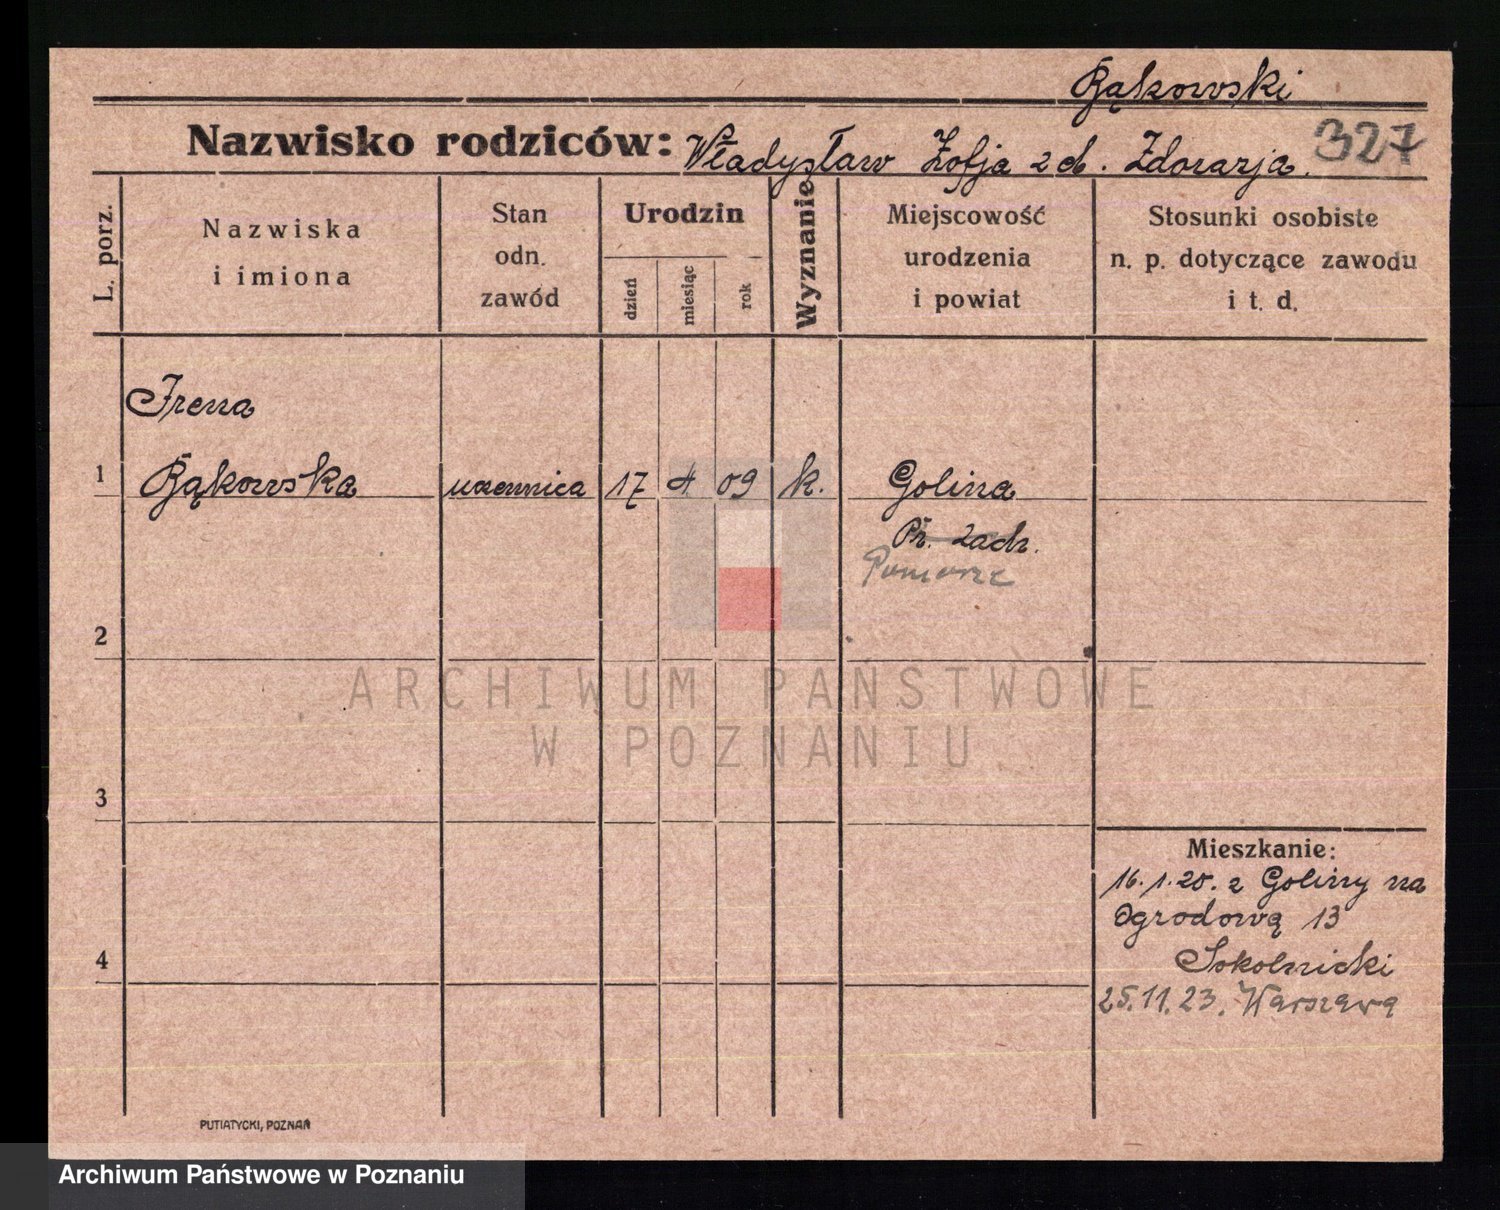 Bąkowski
Nazwisko rodziców: Władysław Zofja z d.
327
L. porz.
Nazwiska
i imiona
Stan
odn.
zawód
Urodzin
dzień
miesiąc
rok
Wyznanie
Miejscowość
urodzenia
i powiat
Stosunki osobiste
n. p. dotyczące zawodu
i t. d.
Irena
1 Bąkowska uczennica 17 4 09 k. Golina
Pr. zach.
Pomorze
2
ARCHIWUM PAŃSTWOWE
W POZNANIU
3
Mieszkanie:
16.1.20. z Goliny na
Ogrodową 13
4
Sokolnicki
25.11.23. Warszawa
PUTIATYCKI, POZNAŃ
Archiwum Państwowe w Poznaniu